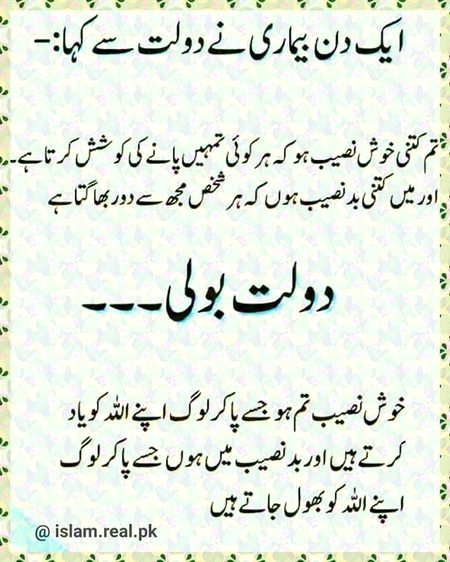 ایک دن بیماری نے دولت سے کہا:-
تم کتنی خوش نصیب ہو کہ ہر کوئی تمہیں پانے کی کوشش کرتا ہے۔
اور میں کتنی بدنصیب ہوں کہ ہر شخص مجھ سے دور بھاگتا ہے
دولت بولی۔۔۔
خوش نصیب تم ہو جسے پا کر لوگ اپنے اللہ کو یاد
کرتے ہیں اور بدنصیب میں ہوں جسے پا کر لوگ
اپنے اللہ کو بھول جاتے ہیں
@ islam.real.pk